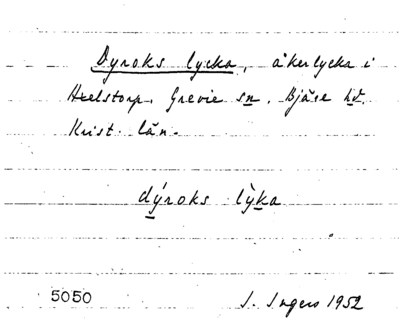 Dyroks lycka, åkerlycka i
Hzelstorp. Grevie sn. Bjäre hd.
Krist. län.
dýroks lỳka
5050 J. Ingers 1952